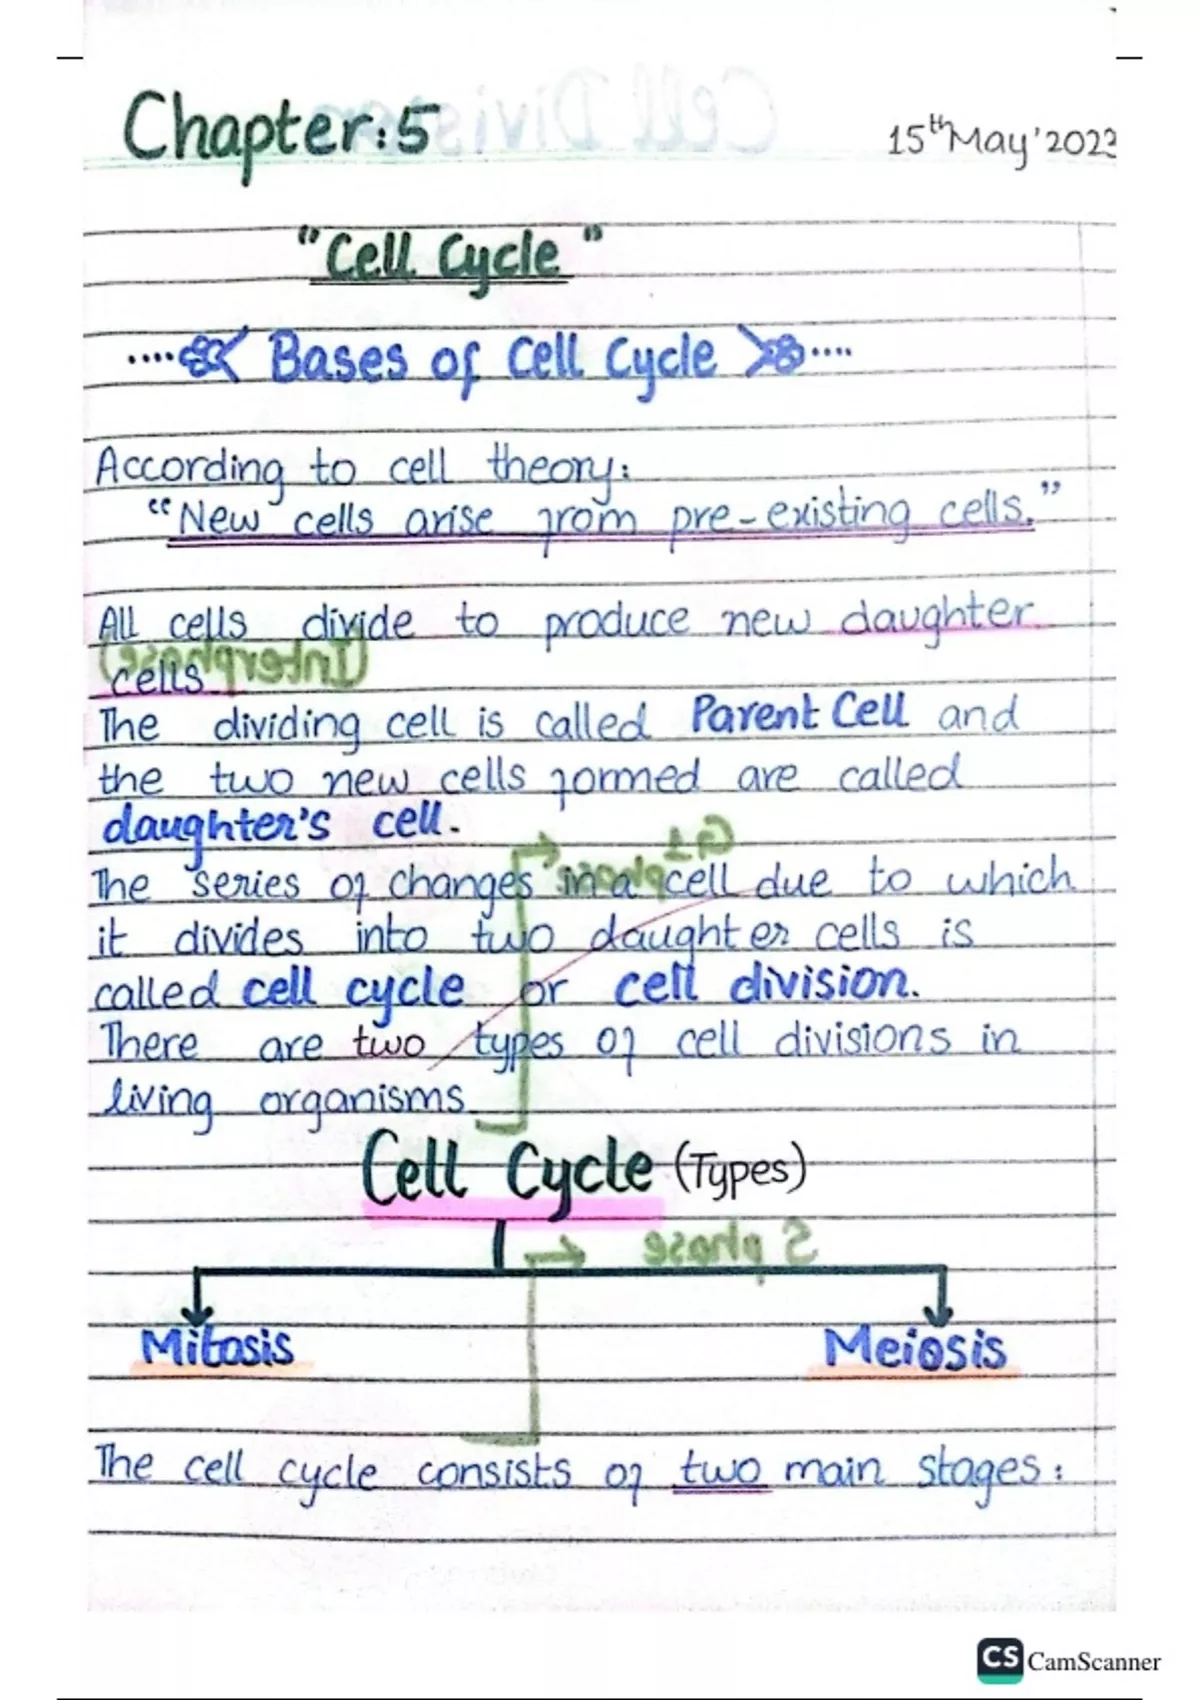 Chapter:5
15th May'2023
"Cell Cycle"
Bases of Cell Cycle
According to cell theory:
"New cells arise from pre-existing cells."
All cells divide to produce new daughter
cells
The dividing cell is called Parent Cell and
the two new cells formed are called
daughter's cell.
The series of changes in a cell due to which
it divides into two daughter cells is
called cell cycle or cell division.
There are two types of cell divisions in
living organisms
Cell Cycle (Types)
Mitosis
Meiosis
The cell cycle consists of two main stages:
CS CamScanner